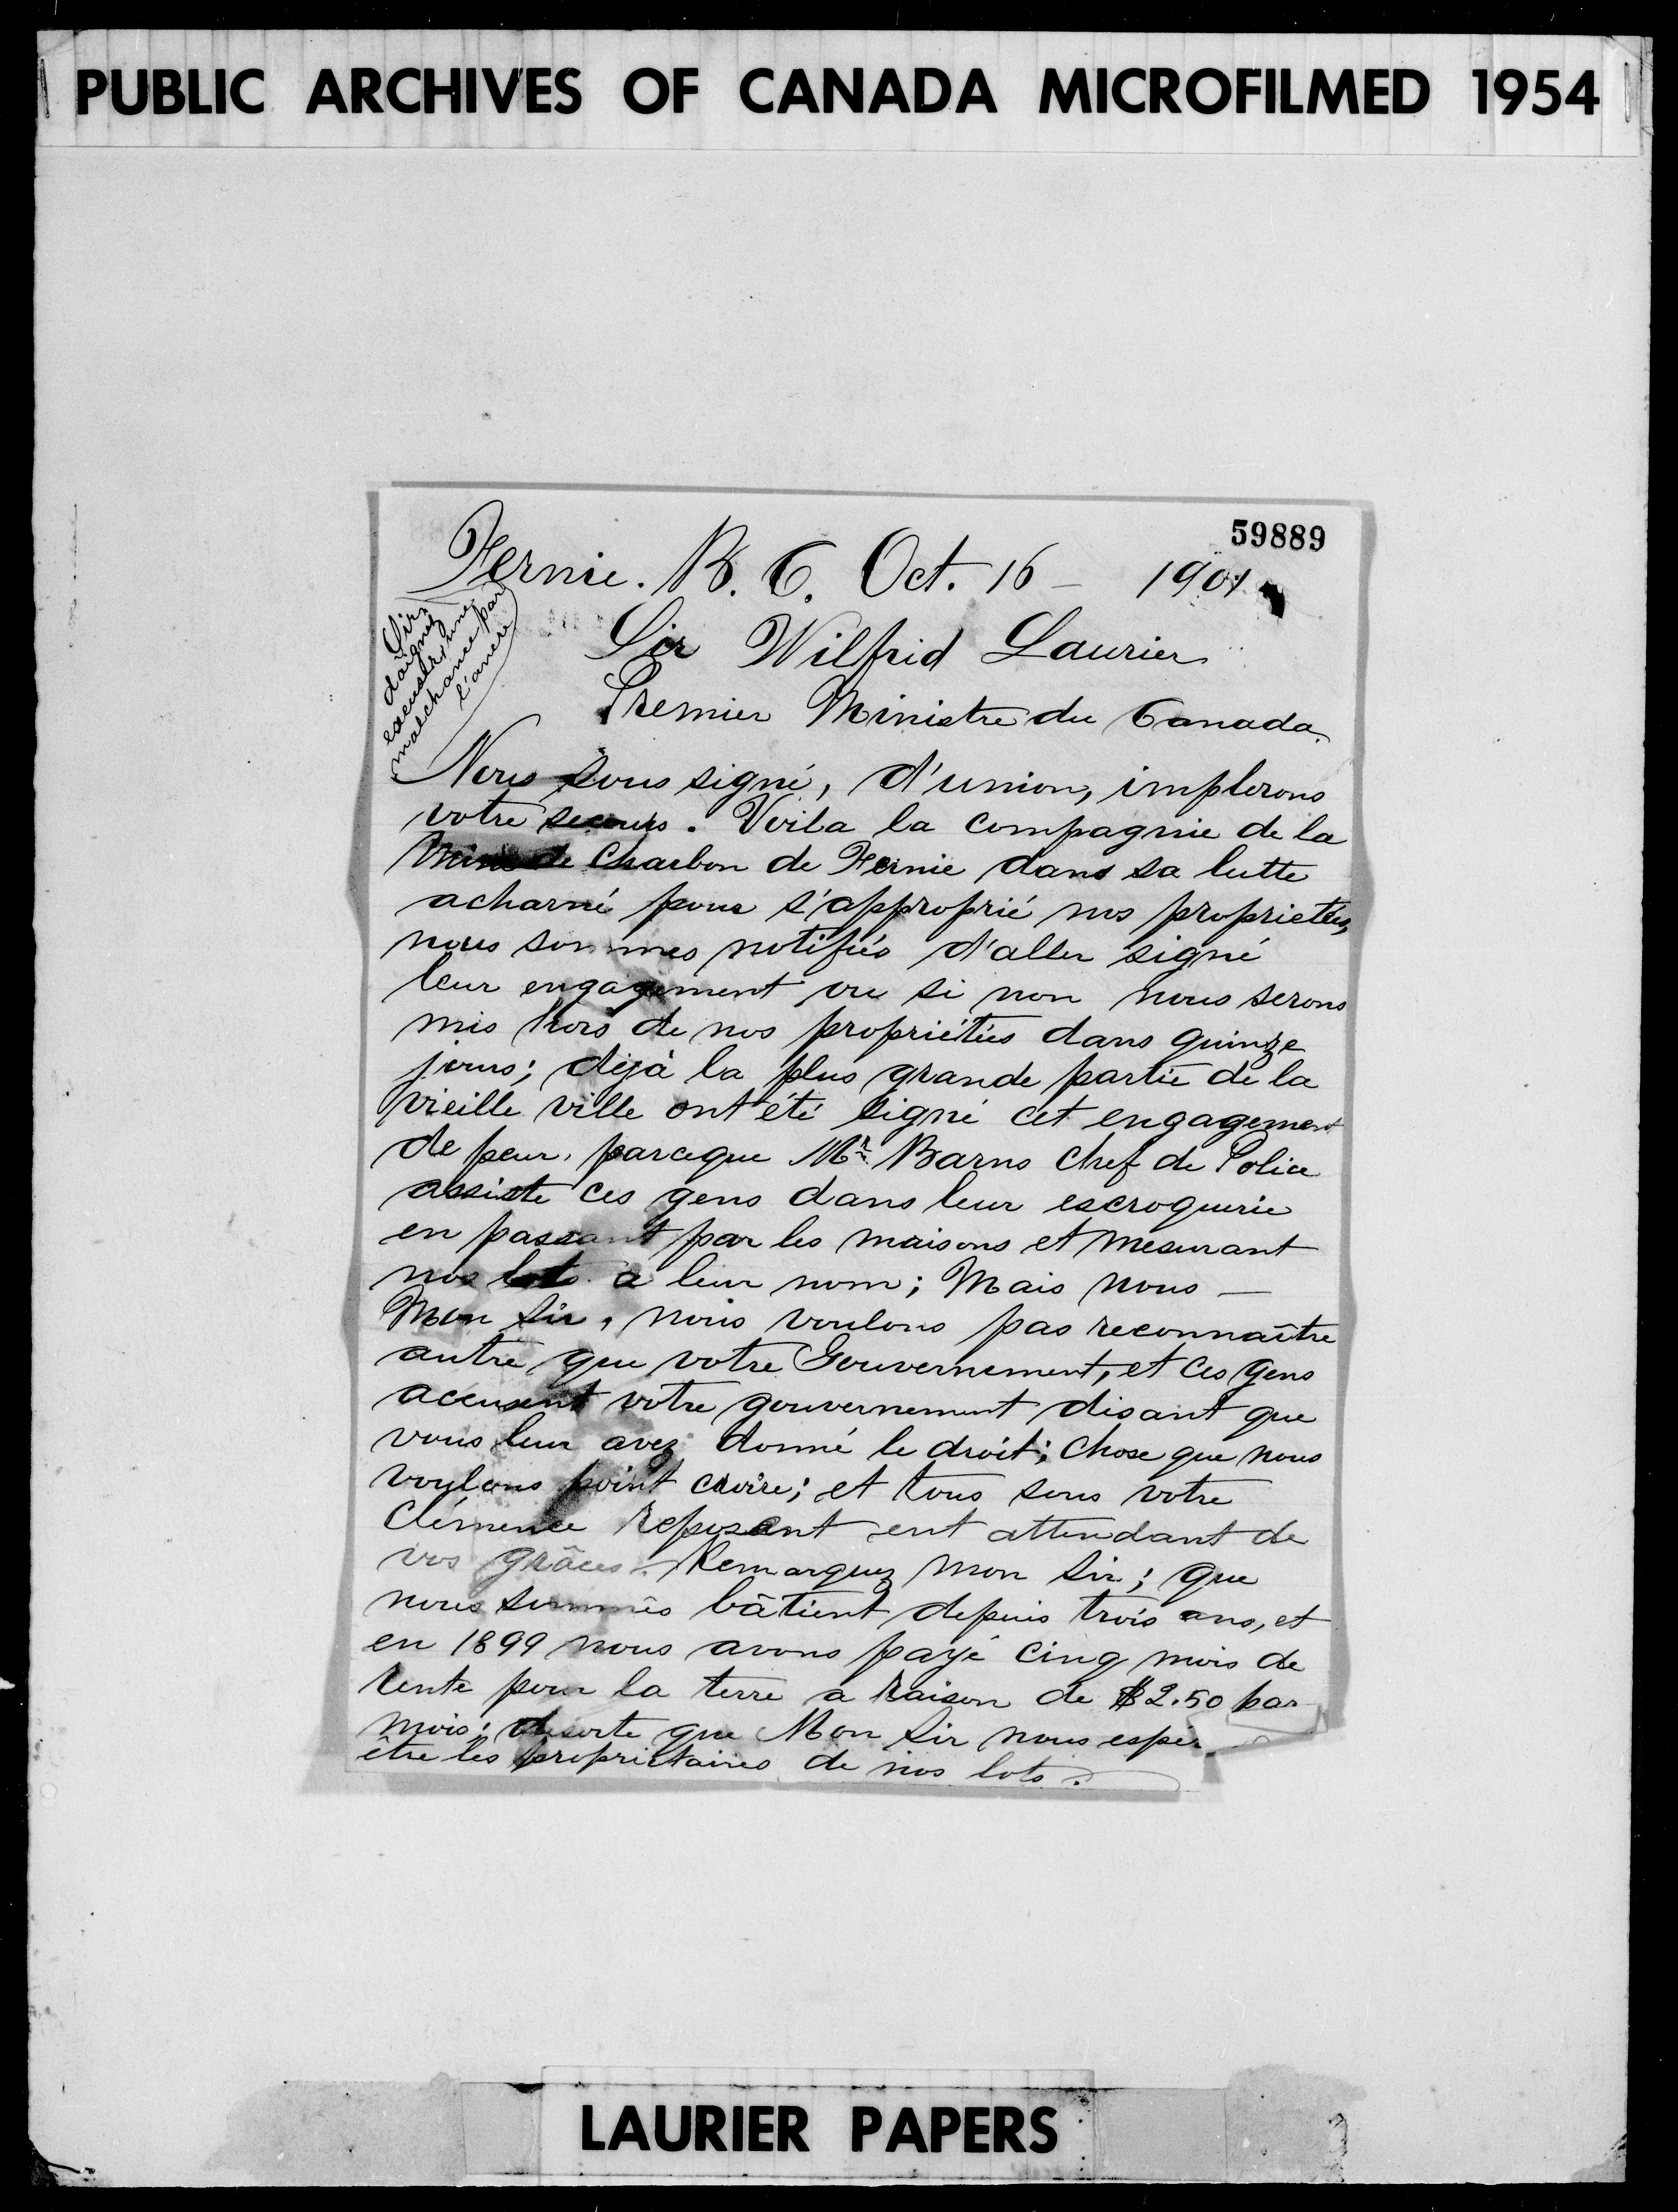 PUBLIC ARCHIVES OF CANADA MICROFILMED 1954
59889
Fernie. B. C. Oct. 16 - 1901
Sir
daignez
excuser une
malchance par
l'ancre
Sir Wilfrid Laurier
Premier Ministre du Canada.
Nous sous signé, d'union, implorons
votre secours. Voila la compagnie de la
Mine de Charbon de Fernie dans sa lutte
acharné pour s'approprié nos proprietées,
nous sommes notifiés d'aller signé
leur engagement ou si non nous serons
mis hors de nos propriétées dans quinze
jours; déjà la plus grande partie de la
vieille ville ont été signé cet engagement
de peur, parceque Mr Barns chef de Police
assiste ces gens dans leur escroquerie
en passant par les maisons et mesurant
nos lots a leur nom; Mais nous —
Mon Sir, nous voulons pas reconnaître
autre que votre Gouvernement, et ces gens
accusent votre gouvernement disant que
vous leur avez donné le droit; chose que nous
voulons point croire; et tous sous votre
clémence reposant ent attendant de
vos grâces. Remarquez mon Sir; que
nous sommes bâtient depuis trois ans, et
en 1899 nous avons payé cinq mois de
rente pour la terre a raison de $2.50 par
mois; desorte que Mon Sir nous espér
être les propriétaires de nos lots.
LAURIER PAPERS